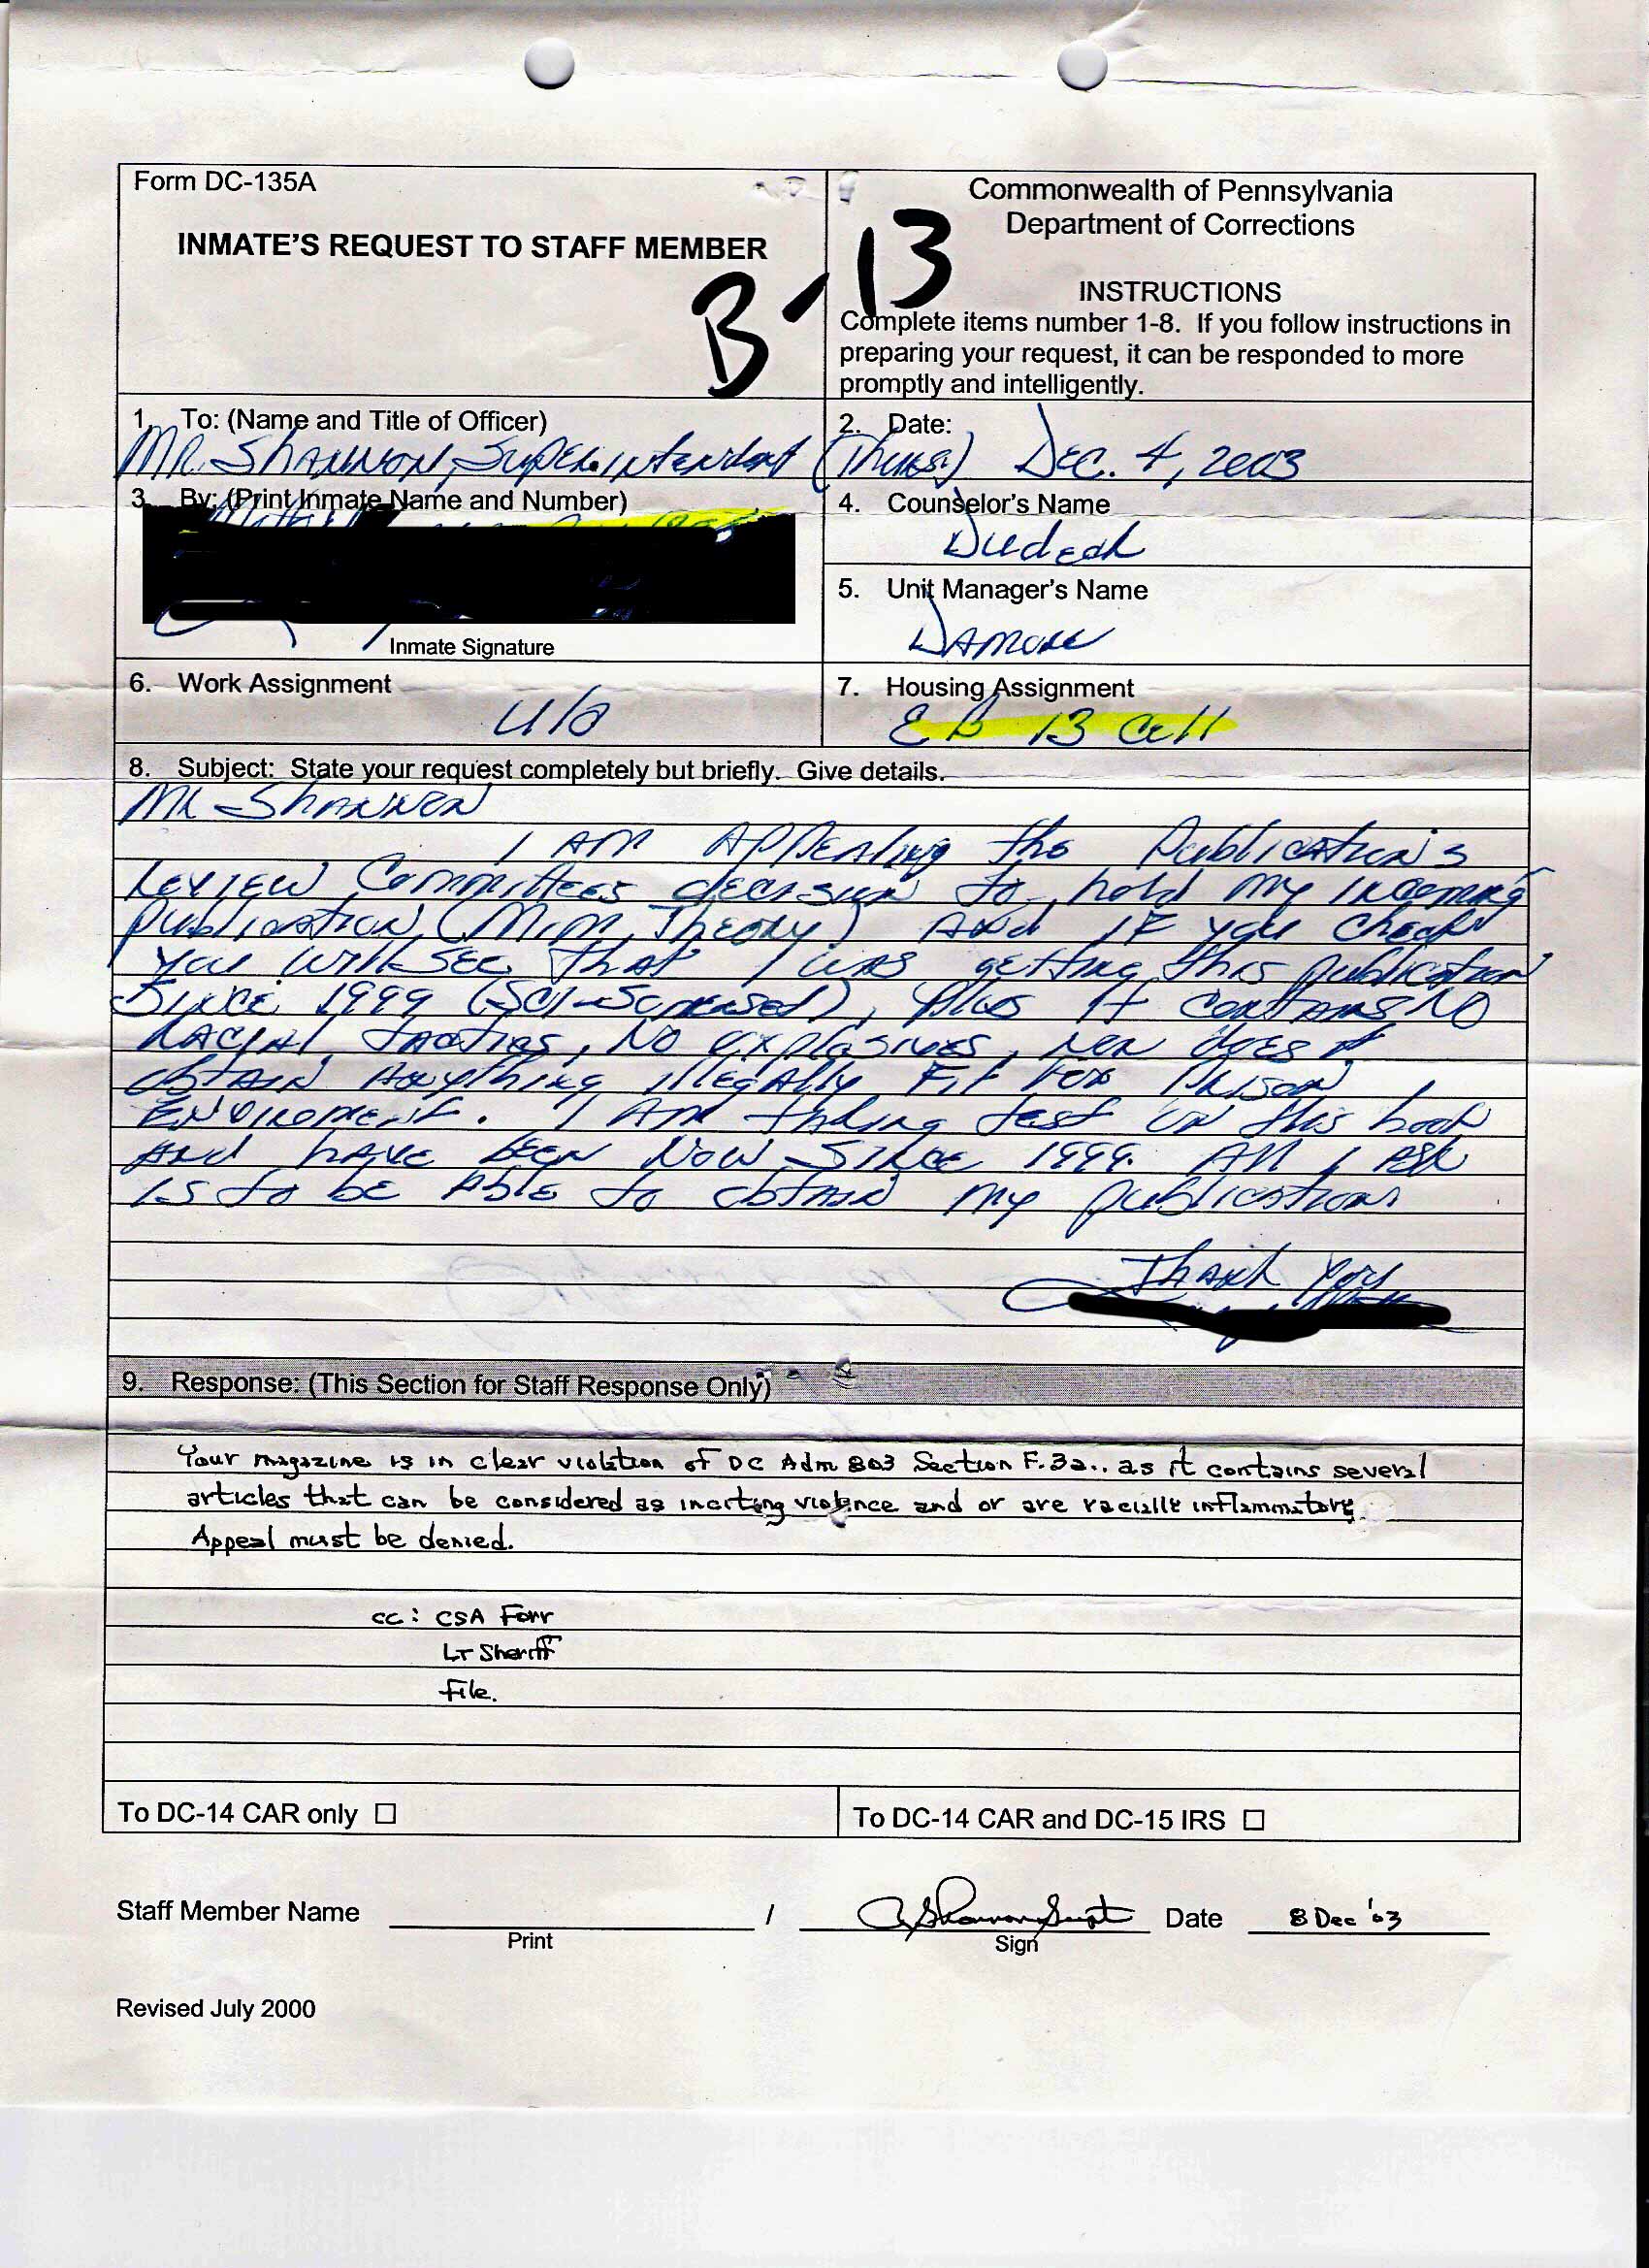 Form DC-135A
INMATE'S REQUEST TO STAFF MEMBER
B-13
Commonwealth of Pennsylvania
Department of Corrections
INSTRUCTIONS
Complete items number 1-8. If you follow instructions in
preparing your request, it can be responded to more
promptly and intelligently.
1. To: (Name and Title of Officer)
MR. SHANNON, Superintendent
2. Date:
(Thurs) Dec. 4, 2003
3. By: (Print Inmate Name and Number)
Inmate Signature
4. Counselor's Name
5. Unit Manager's Name
DAMORE
6. Work Assignment
7. Housing Assignment
EB 13 Cell
8. Subject: State your request completely but briefly. Give details.
MR SHANNON
I AM APPEALING the Publications
REVIEW Committees decision to hold my incoming
publication (M.I.M. Theory) And IF you check
you will SEE that I was getting this publication
Since 1999 , plus it contains NO
RACIAL , NO explosives, nor does it
obtain Anything illegally Fit for PRISON
. I AM taking test on this book
And have been NOW SINCE 1999. All I ASK
is to be Able to obtain my publications
Thank You
9. Response: (This Section for Staff Response Only)
Your magazine is in clear violation of DC Adm 803 Section F.3a.. as it contains several
articles that can be considered as inciting violence and or are racially inflammatory
Appeal must be denied.
cc: CSA Forr
Lt Sheriff
File.
To DC-14 CAR only
To DC-14 CAR and DC-15 IRS
Staff Member Name / Shannon Supt Date 8 Dec '03
Print Sign
Revised July 2000